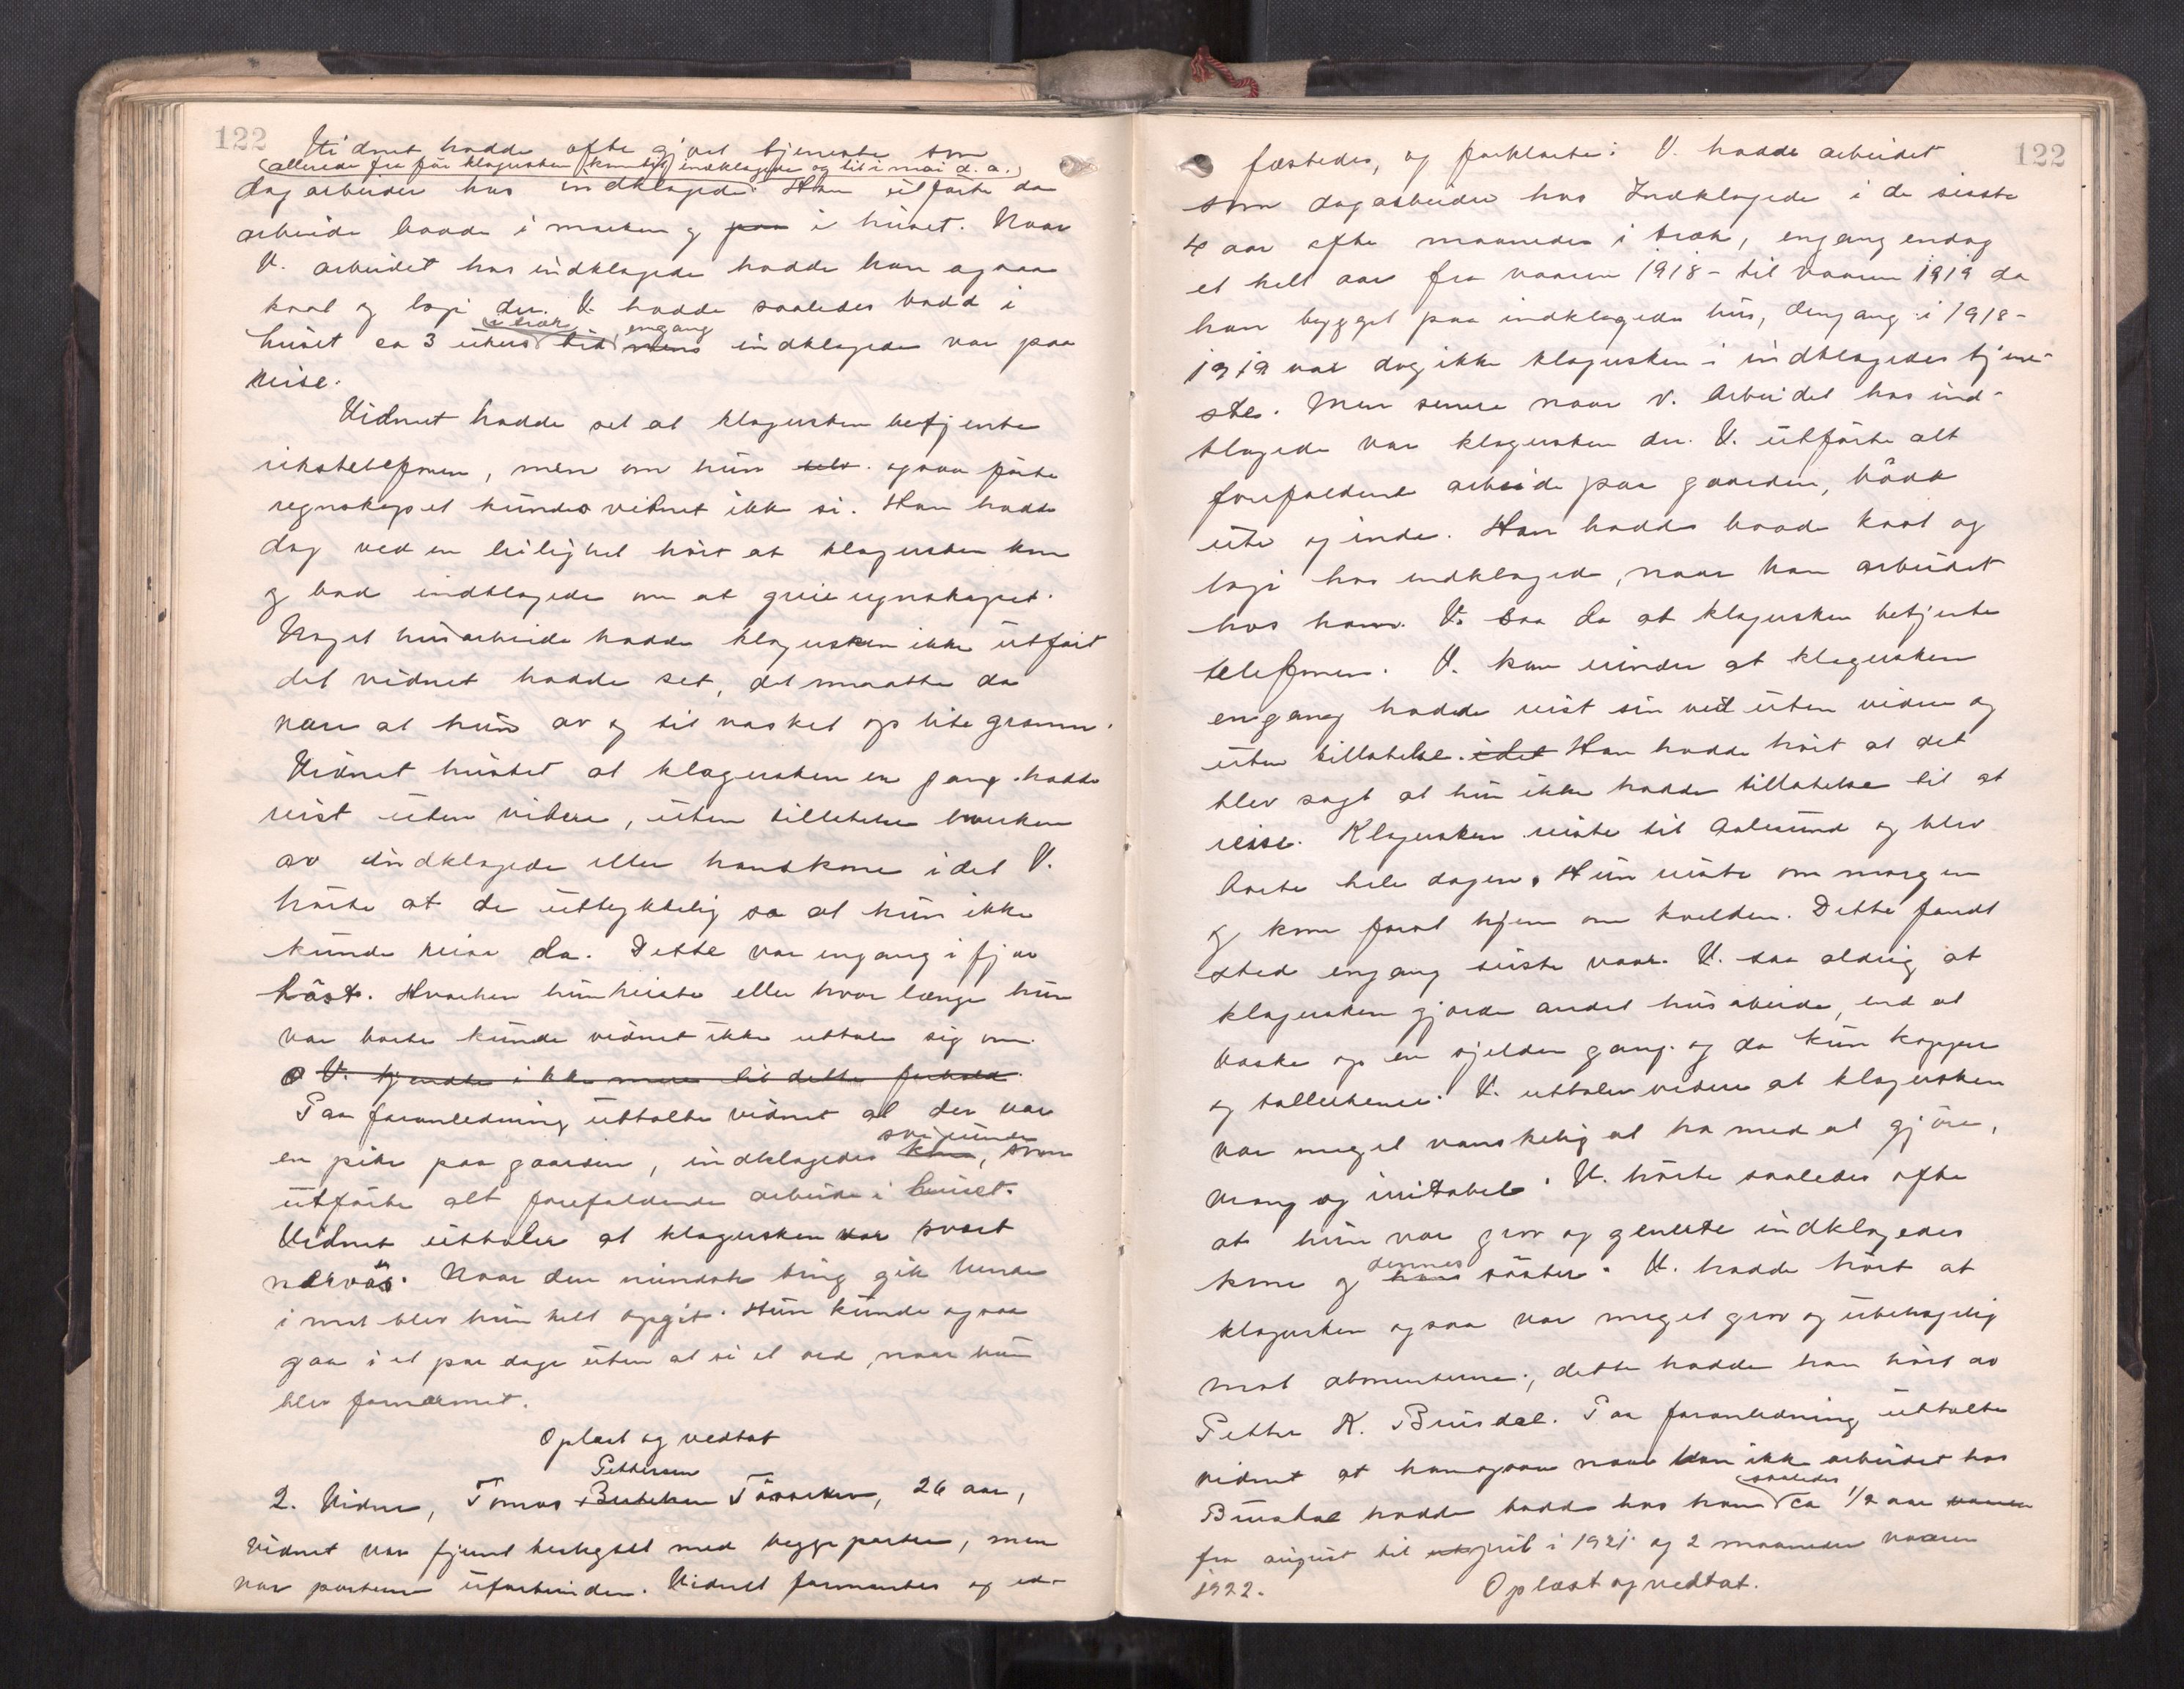 122
Vidnet hadde ofte gjort tjeneste som
(allerede fra før klagersken kom til indklagede og til i mai d. a.)
dagarbeider hos indklagede. Han utførte da
arbeide baade i marken og paa i huset. Naar
V. arbeidet hos indklagede hadde han ogsaa
kost og losji der. V. hadde saaledes bodd i
i træk engang
huset ca 3 ukers tid mens indklagede var paa
reise.
Vidnet hadde set at klagersken betjente
rikstelefonen, men om hun selv ogsaa førte
regnskapet kunde vidnet ikke si. Han hadde
dog ved en leilighet hørt at klagersken kom
og bad indklagede om at greie regnskapet.
Noget husarbeide hadde klagersken ikke utført
det vidnet hadde set, det maatte da
være at hun av og til vasket op lite grann.
Vidnet husket at klagersken en gang hadde
reist uten videre, uten tilladelse hverken
av indklagede eller hans kone idet V.
hørte at de uttrykkelig sa at hun ikke
kunde reise da. Dette var engang i fjor
høst. Hvorhen hun reiste eller hvor længe hun
var borte kunde vidnet ikke uttale sig om.
V. kjendte ikke mere til dette forhold.
Paa foranledning uttalte vidnet at der var
svigerinde
en pike paa gaarden, indklagedes kone, som
utførte alt forefaldende arbeide i huset.
Vidnet uttaler at klagersken var svært
nærvøs. Naar den mindste ting gik hende
i mot blev hun helt opgit. Hun kunde ogsaa
gaa i et par dage uten at si et ord, naar hun
blev fornærmet.
Oplæst og vedtat
Pettersen
2. Vidne, Tomas, 26 aar,
vidnet var fjernt beslegtet med begge parter, men
var parterne uforbunden. Vidnet formantes og ed-
122
fæstedes, og forklarte: V. hadde arbeidet
som dagarbeider hos Indklagede i de sisste
4 aar ofte maaneder i træk, engang endog
et helt aar fra vaaren 1918 - til vaaren 1919 da
han bygget paa indklagedes hus, dengang i 1918-
1919 var dog ikke klagersken i indklagedes tjene-
ste. Men senere naar V. arbeidet hos ind-
klagede var klagersken der. V. utførte alt
forefaldende arbeide paa gaarden, både
ute og inde. Han hadde baade kost og
losji hos indklagede, naar han arbeidet
hos ham. V. saa da at klagersken betjente
telefonen. V. kan minde at klagersken
engang hadde reist sin vei uten videre og
uten tillatelse. idet Han hadde hört at det
blev sagt at hun ikke hadde tillatelse til at
reise. Klagersken reiste til Aalesund og blev
borte hele dagen. Hun reiste om morgen
og kom først hjem om kvelden. Dette fandt
sted engang siste vaar. V. saa aldrig at
klagersken gjorde andet husarbeide, end at
vaske op en sjelden gang. og da kun kopper
og tallerkener. V. uttaler videre at klagersken
var meget vanskelig at ha med at gjöre,
vrang og irritabel. V. hörte saaledes ofte
at hun var grov og generte indklagedes
dennes
kone og hans søster. V. hadde hört at
klagersken ogsaa var meget grov og ubehagelig
mot abonenterne; dette hadde han hört av
Petter K. Brusdal. Paa foranledning uttalte
vidnet at han ogsaa naar han ikke arbeidet hos
saaledes
Brusdal hadde bodd hos ham ca 1/2 aar vaaren
fra august til april i 1921 og 2 maaneder vaaren
1922.
Oplæst og vedtat.